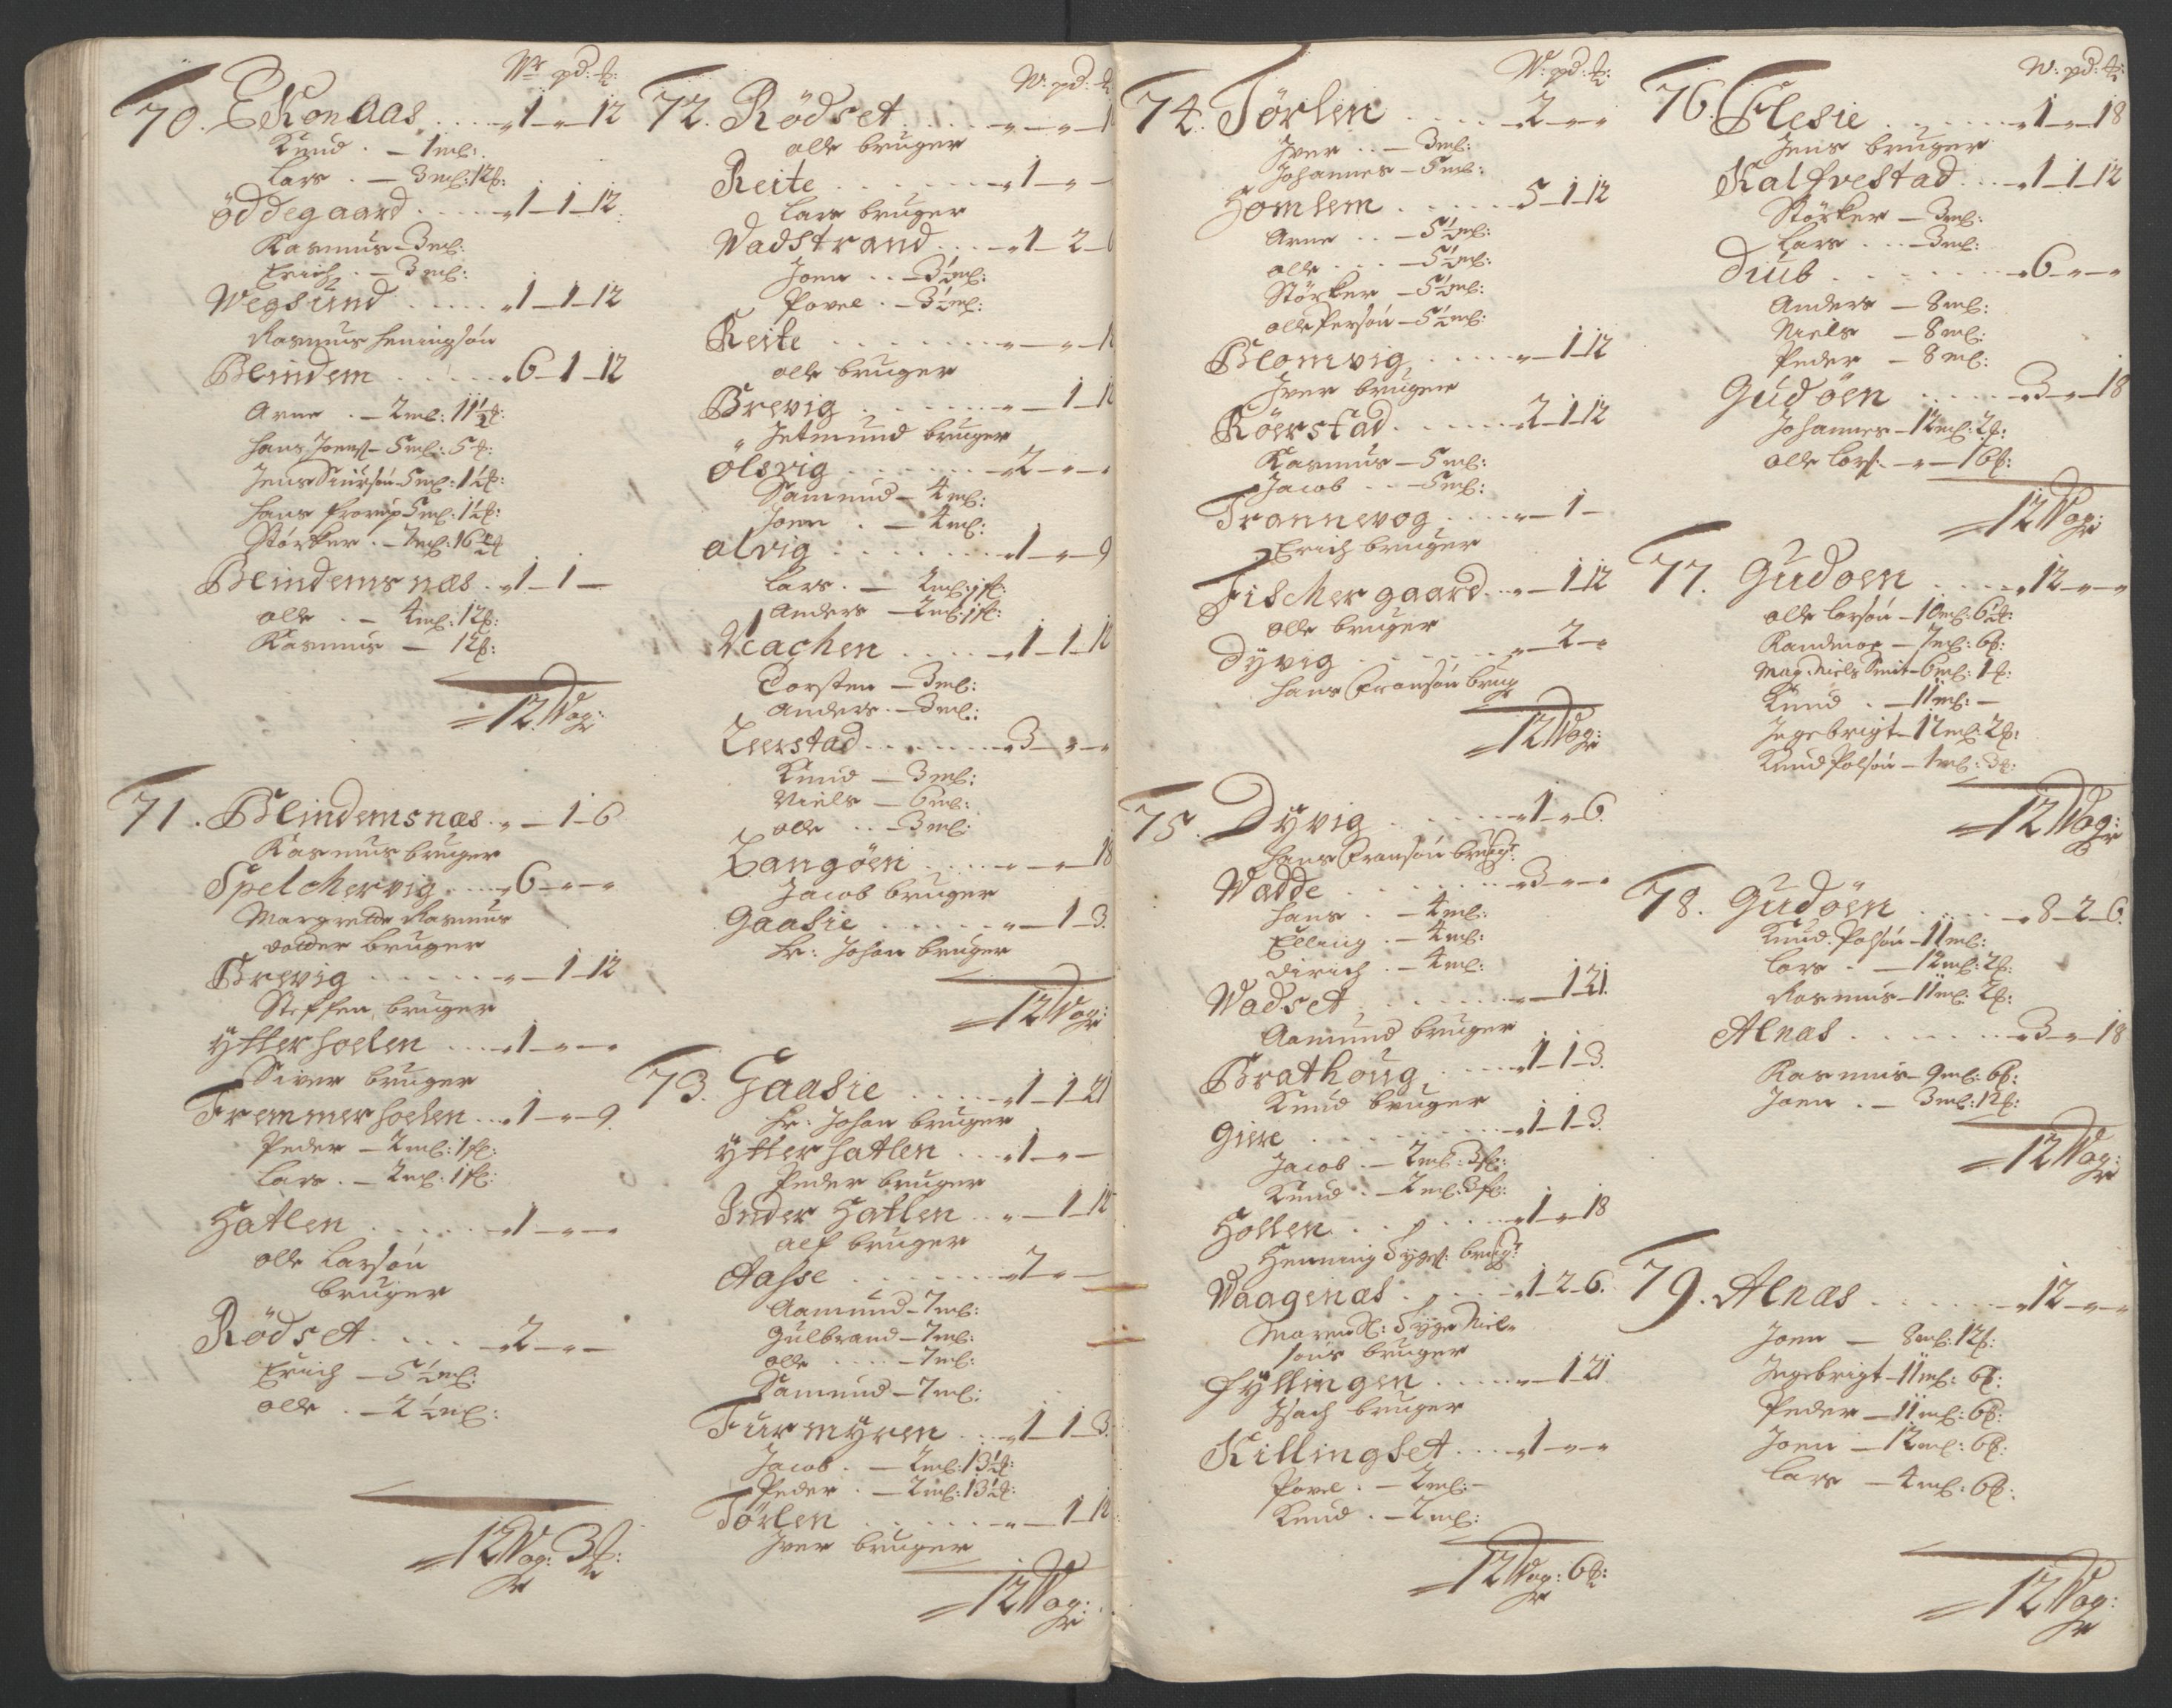 Wr pd: ℔:
70. Ekonaas .... 1 - " - 12
Knud . — 1 ml:
Lars . — 3 ml: 12 ℔:
Öddegaard .... 1 - 1 - 12
Rasmus - 3 ml:
Erich . — 3 ml:
Wegsund .... 1 - 1 - 12
Rasmus Heningsön
Blindem .... 6 - 1 - 12
Arne . — 2 ml: 11½ ℔:
Hans Joens - 5 ml: 5 ℔:
Jens Siursön 5 ml: 1½ ℔:
Hans 5 ml: 1½ ℔:
Störker . — 7 ml: 16½ ℔
Blindemsnæs . 1 - 1 -
olle . — 4 ml: 12 ℔:
Rasmus — 12 ℔:
12 Wog:
71. Blindemsnæs . " - 1 - 6
Rasmus bruger
Spelchervig .... 6 - " - "
Margrette Rasmus
datter bruger
Brevig ...... " - 1 - 12
Steffen bruger
Ytterhoelen .... 1 - " - "
Siver bruger
Fremmerhoelen ... 1 - " - 9
Peder — 2 ml: 1 ℔:
Lars . — 2 ml: 1 ℔:
Hatlen ..... 1 - " - "
olle Larsön
bruger
Rödset .... 2 - " - "
Erich — 5½ ml:
olle . — 2½ ml:
12 Wog: 3 ℔:
W: pd: ℔
72. Rödset .... " - " - 1
olle bruger
Reite ....... 1 - " -
Lars bruger
Wadstrand .... 1 - 2 -
Joen .. — 3½ ml:
Povel . — 3½ ml:
Reite ....... " - " - 1
olle bruger
Brevig ...... " - 1 - 1
Jetmund bruger
Ölsvig ...... 2 - " - "
Samund — 4 ml:
Joen . — 4 ml:
Alvig ....... 1 - " - 9
Lars . — 2 ml: 1 ℔:
Anders — 2 ml: 1 ℔:
Veachen .... 1 - 1 - 12
Torsten — 3 ml:
Anders . — 3 ml:
Leerstad ....... 3 - " - "
Knud — 3 ml:
Niels — 6 ml:
olle .. — 3 ml:
Langöen .... " - " - 18
Jacob bruger
Gaasie ...... " - 1 - 3
Hr: Johan bruger
12 Wog:
73. Gaasie ..... 1 - 1 - 21
Hr: Johan bruger
Ytterhatlen ... 1 - " -
Peder bruger
Inder Hatlen .. " - 1 - 12
alf bruger
Aasse ....... 7 - " -
Aamund - 7 ml:
Gulbrand - 7 ml:
olle .... - 7 ml:
Samund - 7 ml:
Furmyren ... 1 - 1 - 3
Jacob . — 2 ml: 13½ ℔:
Peder . — 2 ml: 13½ ℔:
Törlen ...... " - 1 - 12
Jver bruger
12 Wog:
W: pd: ℔:
74. Törlen .... 2 - " - "
Jver .. — 3 ml:
Johannes — 5 ml:
Homlem ..... 5 - 1 - 12
Arne .. — 5½ ml:
olle ... — 5½ ml:
Störker — 5½ ml:
olle Persön — 5½ ml:
Blomvig .... " - 1 - 12
Jver bruger
Röerstad ..... 2 - 1 - 12
Rasmus — 5 ml:
Jacob .. — 5 ml:
Trannevog .... " - 1 -
Erich bruger
Fischergaard ... " - 1 - 12
olle bruger
Dyvig ....... " - 2 - "
Hans Fransön brug
12 Wog:
75. Dyvig ...... 1 - " - 6
Hans Fransön brugr
Wadde ....... 3 - " - "
Hans . — 4 ml:
Elling . — 4 ml:
Dirich . — 4 ml:
Wadset ....... " - 1 - 21
Aamund bruger
Brathoug .... 1 - 1 - 3
Knud bruger
Giere ........ 1 - 1 - 3
Jacob . — 2 ml: 3 ℔:
Knud . — 2 ml: 3 ℔:
Hollen ....... 1 - " - 18
Henning Tygs: brugr
Waagenæs ..... 1 - 2 - 6
Maren Sl: Tyge Niel-
sens bruger
Fyllingen ..... " - 1 - 21
Isach bruger
Killingset .... 1 - " - "
Povel . — 2 ml: -
Knud . — 2 ml:
12 Wog: 6 ℔:
W: pd: ℔:
76. Flesie ...... 1 - " - 18
Jens bruger
Kalfvestad .... 1 - 1 - 12
Störker — 3 ml:
Lars ... — 3 ml:
Diub ....... 6 - " - "
Anders — 8 ml:
Niels — 8 ml:
Peder — 8 ml:
Gudöen ..... 3 - " - 18
Johannes — 12 ml: 2 ℔:
olle Lars: — " — 16 ℔:
12 Wog:
77. Gudöen ..... 12 - " - "
olle Larsön — 10 ml: 6½ ℔:
Randmoe — 7 ml: 6 ℔:
Mag. Niels Smit — 6 ml: 1 ℔:
Knud . — 11 ml: —
Ingebrigt — 12 ml: 2 ℔:
Knud Polsön — 1 ml: 3 ℔:
12 Wog:
78. Gudöen ..... 8 - 2 - 6
Knud Polsön — 11 ml:
Lars . — 12 ml: 2 ℔:
Rasmus — 11 ml: 2 ℔:
Alnæs ....... 3 - " - 18
Rasmus — 9 ml: 6 ℔:
Joen . — 3 ml: 12 ℔:
12 Wog:
79. Alnæs ...... 12 - " - "
Joen — 8 ml: 12 ℔:
Ingebrigt — 11 ml: 6 ℔:
Peder — 11 ml: 6 ℔:
Joen — 12 ml: 6 ℔:
Lars — 4 ml: 6 ℔:
12 Wog: